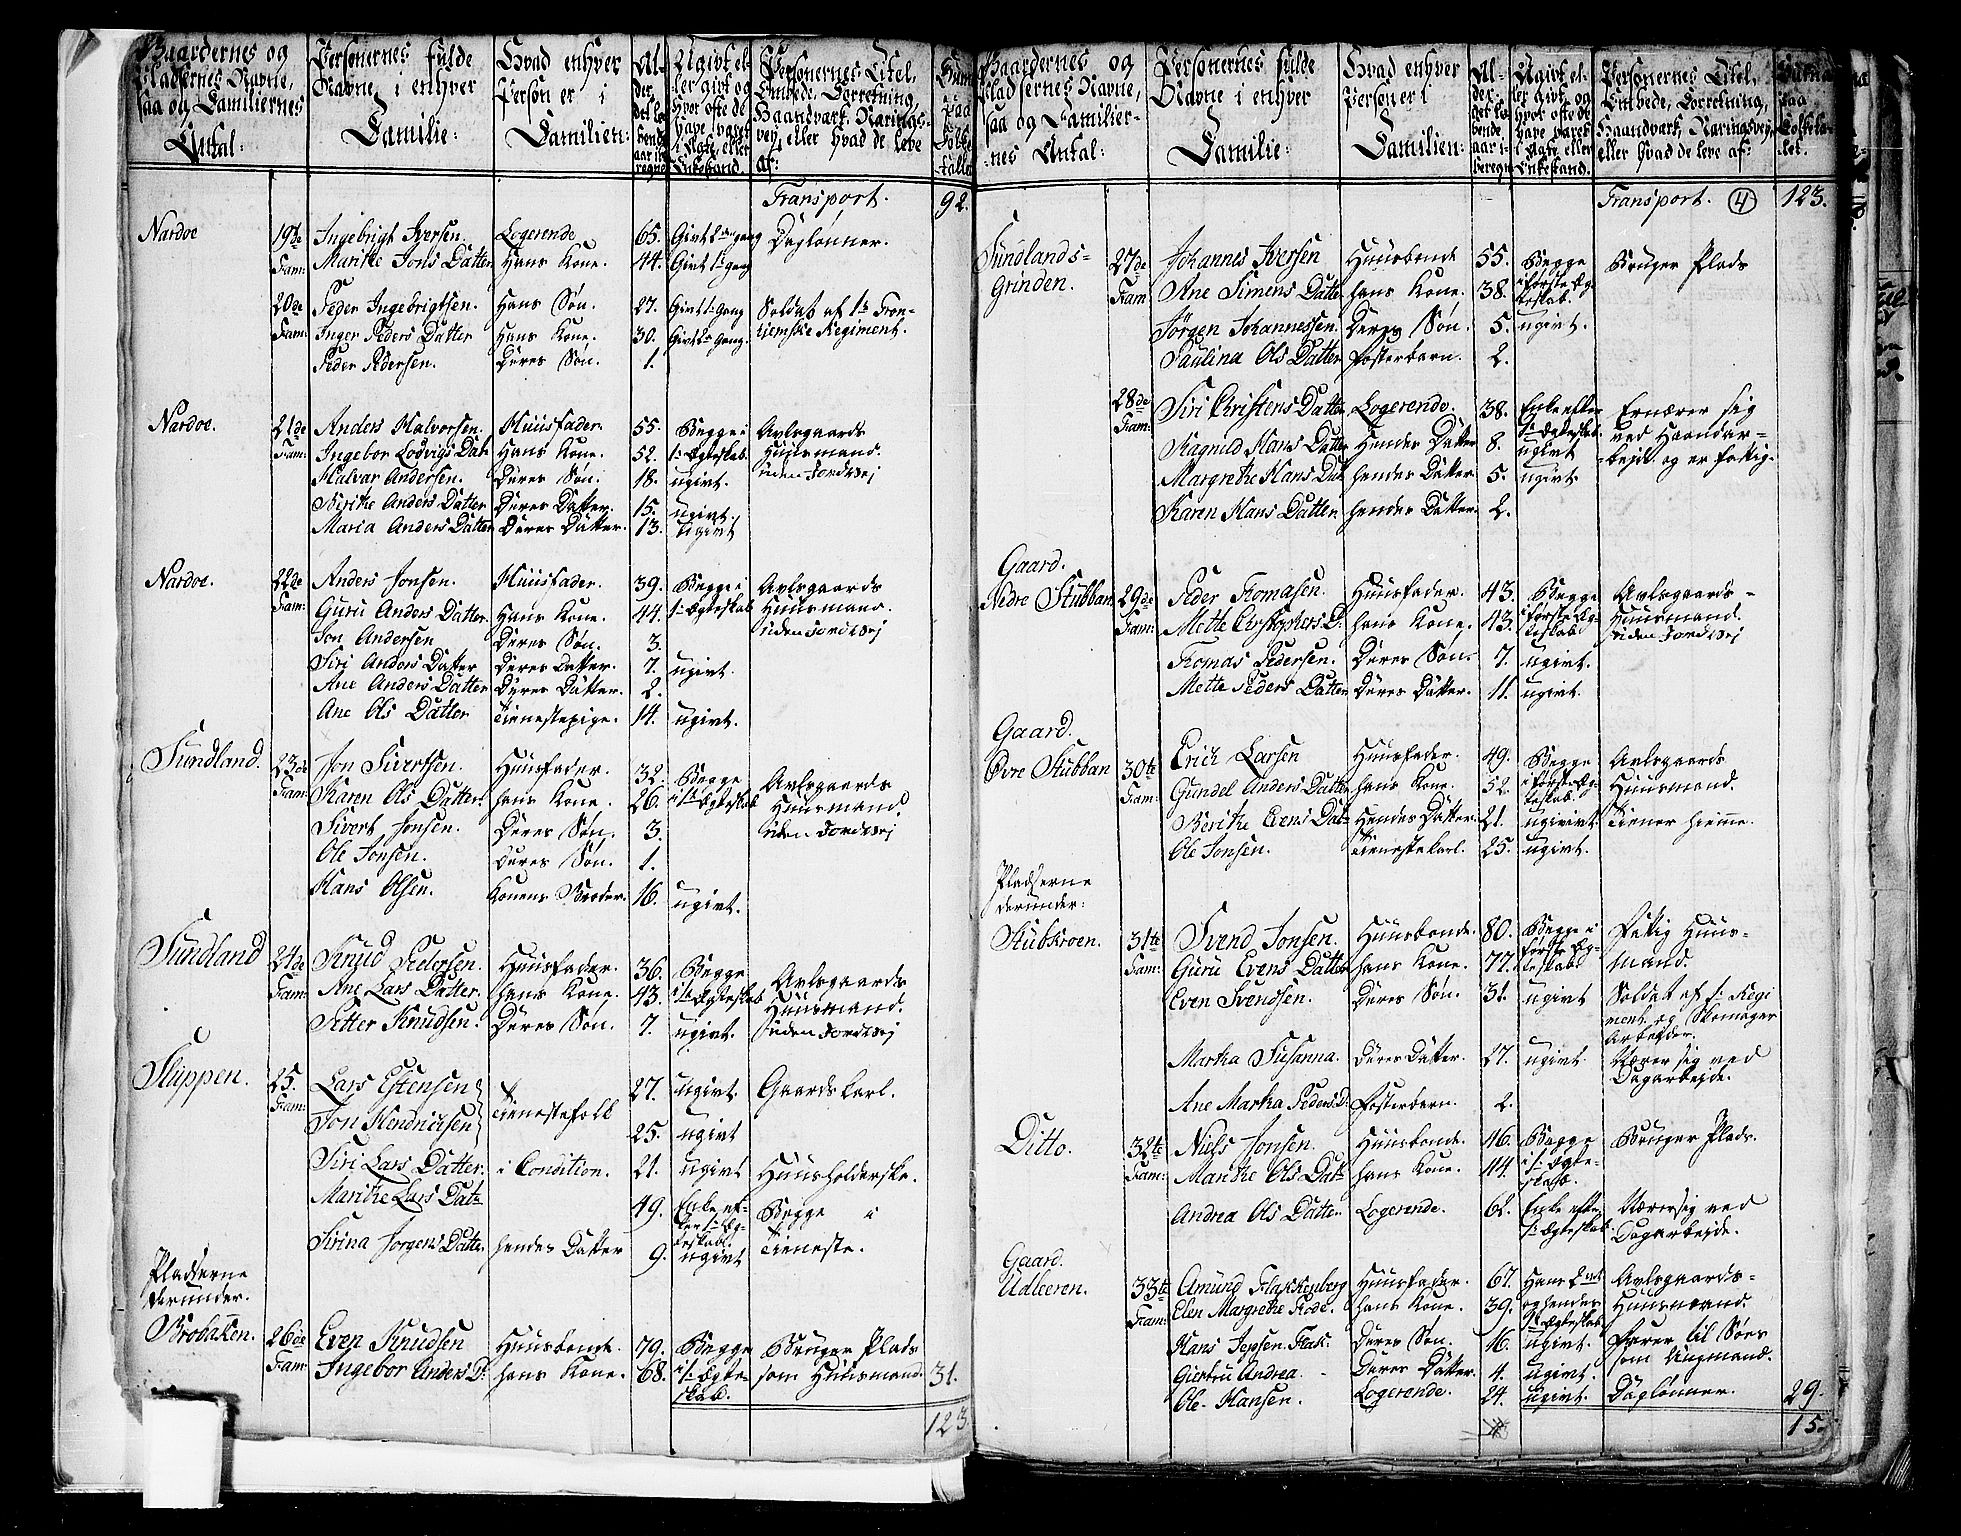 Gaardernes og Pladsernes Navne, saa og Familiernes Antal:
Personernes fulde Navne i enhver Familie:
Hvad enhver Person er i Familien:
Ugivt eller givt og hvor ofte de have været i Ægte eller Enkestand.
Personernes Titel, Embede, Forretning, Haandværk, Næringsvej, eller hvad de leve af:
Transport. 92.
Nardoe 19de Ingebrigt Iversen. Logerende 65. Givt gang Daglønner.
Fam: Marithe Jons Datter Hans Kone. 44. Givt 1te gang
20de Peder Ingebrigtsen. Hans Søn. 27. Givt 1te Gang Soldat af 1te Tron-
Fam: Inger Peders Datter Hans Kone. 30. Givt 1te Gang. hiemske Regiment.
Peder Pedersen. Deres Søn. 1.
Nardoe. 21de Anders Halvorsen. Huusfader 55. Begge i Avlsgaards
Fam: Ingebor Lodvigs Dat: Hans Kone. 52. 1te Ægteskab. Huusmand.
Halvar Andersen. Deres Søn. 18. ugivt. uden Jordvej
Berithe Anders Datter Deres Datter. 15. ugivt.
Maria Anders Datter Deres Datter. 13. ugivt
Nardoe. 22de Anders Jonsen. Huusfader. 39. Begge i Avlsgaards
Fam: Guru Anders Datter. Hans Kone. 44. 1te Ægteskab Huusmand.
Jon Andersen Deres Søn. 3. uden Jordvej
Siri Anders Datter Deres Datter. 7. ugivt
Ane Anders Datter Deres Datter. 2.
Ane Ols Datter Tienestepige. 14. ugivt.
Sundland. 23de Jon Sivertsen. Huusfader. 32. Begge Avlsgaards
Fam: Karen Ols Datter. hans Kone. 26. i 1te Ægteskab Huusmand.
Sivert Jonsen. Deres Søn. 3. uden Jordvej
Ole Jonsen. Deres Søn. 1.
Hans Olsen. Konens Broder. 16. ugivt.
Sundland 24de Knud Pedersen. Huusfader. 36. Begge Avlsgaards
Fam: Ane Lars Datter. hans Kone. 43. i 1te Ægteskab Huusmand.
Petter Knudsen. Deres Søn. 7. ugivt. uden Jordvej
Sluppen. 25. Lars Estensen 27. ugivt. Gaards karl.
Fam: Jon Hendricsen Tienestefolk 25. ugivt
Siri Lars Datter. i Condition. 21. ugivt Huusholderske.
Marithe Lars Dat: 49. Enke ef-ter 1te Æg-teskab. Begge i
Sirina Jørgens Datter. hendes Datter 9. ugivt Tieneste.
Pladserne
derunder.
Brobaken. 26de Even Knudsen Huusbonde. 79. Begge Bruger Plads
Fam: Ingebor Anders D: hans Kone. 68. i 1te Ægte-skab. som Huusmand. 31.
123.
Gaardernes og Pladsernes Navne, saa og Familiernes Antal:
Personernes fulde Navne i enhver Familie:
Hvad enhver Person er i Familien:
Alder, det løbende aar iberegnet
Ugivt eller givt, og hvor ofte de have været i Ægte eller Enkestand.
Personernes Titel, Embede, Forretning, Haandværk, Næringsvej, eller hvad de leve af:
Transport. 4 123.
Sundlands- 27de Johannes Iversen Huusbonde 55. Begge Bruger Plads
Grinden. Fam: Ane Simens Datter hans Kone. 38. i første Æg-teskab.
Jørgen Johannessen. Deres Søn. 5. ugivt.
Paulina Ols Datter Fosterbarn. 2.
28de Siri Christens Datter Logerende. 38. Enke efter Ernærer sig
Fam: 1te Ægteskab. ved Haandar-
Ragnild Hans Datter Hendes Datter 8. ugivt bejde og er fattig.
Margrethe Hans Dat: hendes Datter 5. ugivt
Karen Hans Datter hendes Datter. 2.
Gaard.
Nedre Stubban 29de Peder Tomasen. Huusfader. 43. Begge Avlsgaards-
Fam: Mette Christophers D: hans Kone. 43. i første Æg-teskab Huusmand.
uden Jordvej
Tomas Pedersen. Deres Søn. 7. ugivt.
Mette Peders Datter Deres Datter. 11. ugivt.
Gaard.
Øvre Stubban 30te Erich Larsen Huusfader. 49. Begge Avlsgaards
Fam: Gundel Anders Datter hans Kone. 52. i første Æg-teskab. Huusmand.
Berithe Evens Dat: Hendes Datter. 21. ugivivt. Tiener hieme.
Ole Jonsen. Tienestekarl. 25. ugivt.
Pladserne
derunder:
Stubkroen. 31te Svend Jonsen. Huusbonde. 80. Begge i Fattig Huus-
Fam: Guru Evens Datter hans Kone. 77. første Æg-teskab mand.
Even Svendsen. Deres Søn. 31. ugivt Soldat af 1te Regi
ment. og Skomager
Arbejder.
Martha Susanna. Deres Datter. 27. ugivt. Nærer sig ved
Dagarbejde.
Ane Martha Peders D: Fosterbarn. 2.
Ditto. 32te Niels Jonsen. Huusbonde. 46. Begge Bruger Plads.
Fam: Marithe Ols Dat: hans Kone. 44. i 1te Ægte-skab.
Andrea Ols Datter Logerende. 62. Enke efter Nærer sig ved
1te Ægteskab. Dagarbejde.
Gaard.
Udleeren. 33te Amund Flakkenberg Huusfader. 67. Hans 2det Avlsgaards-
Fam: Elen Margrethe Rode. hans Kone. 39. og hendes Huusmand.
1te Ægteskab.
Hans Jepsen Flak: Deres Søn. 16. ugivt. Farer til Søes
Giertru Andrea. Deres Datter. 4. ugivt. som Ungmand.
Ole Hansen. Logerende. 24. ugivt. Daglønner. 29.
15.